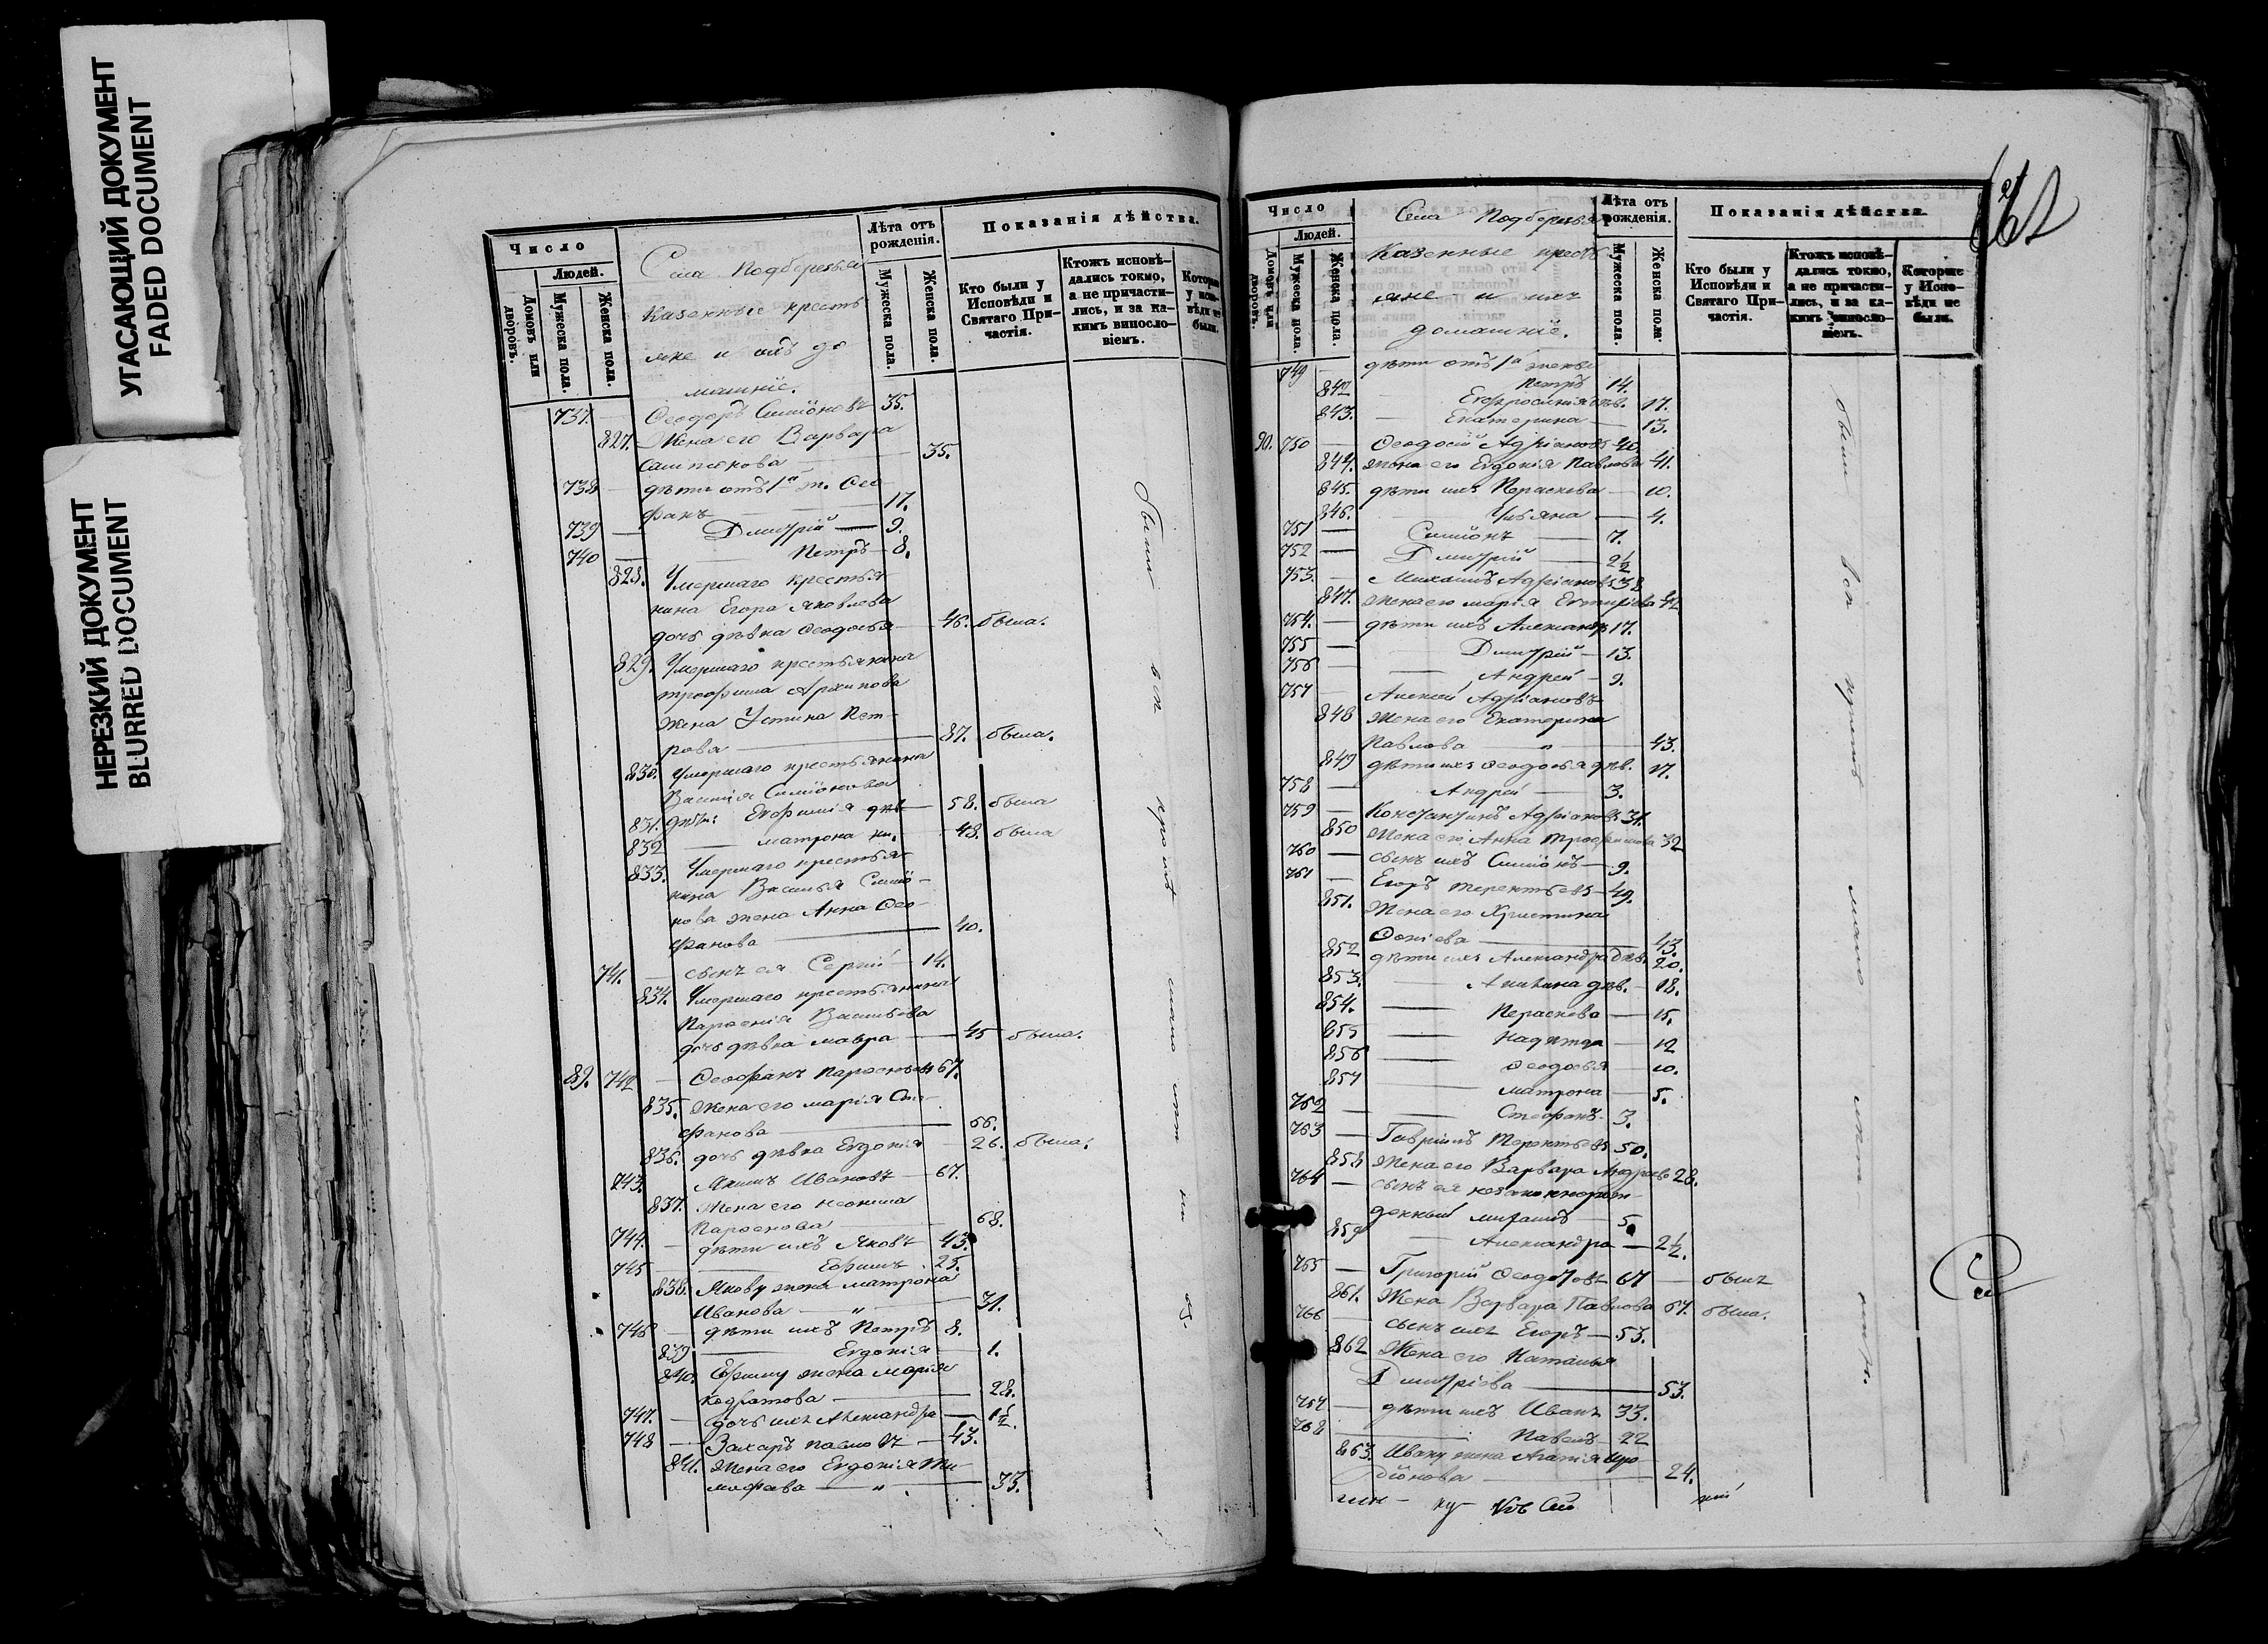 УГАСАЮЩИЙ ДОКУМЕНТ
FADED DOCUMENT
НЕРЕЗКИЙ ДОКУМЕНТ
BLURRED DOCUMENT
Число
Людей.
Домовъ или дворовъ.
Мужеска пола.
Женска пола.
Села Подберезья
Казенные кресть
яне и ихъ до
машніе.
Лѣта отъ рожденія.
Мужеска пола.
Женска пола.
Показанія дѣйства.
Кто были у Исповѣди и Святаго Причастія.
Ктожъ исповѣдались токмо, а не причастились, и за какимъ винословіемъ.
Которые у исповѣди не были.
737. — Ѳеодоръ Симіоновъ 35.
827. Жена его Варвара
35.
738 — дѣти отъ 1й ж. Ѳео
фанъ — 17.
739 — Дмитрій — 9.
740 — Петръ — 8.
828. Умершаго крестья
нина Егора Яковлева
дочь дѣвка Ѳеодосья — 46. была.
829. Умершаго крестьянина
Трофима Архипова
жена Устина Пет-
рова — 87. была.
830. Умершаго крестьянина
Василія Симіонова
831. дѣти: Евфимія дѣв — 58. была
832 — Матрона — 48. была
833. Умершаго крестья
нина Василья Симіо-
нова жена Анна Ѳео-
фанова — 40.
741. — сынъ ея Сергій — 14.
834. Умершаго крестьянина
Парѳенія Васильева
дочь дѣвка Мавра — 45 была.
89. 742 — Ѳеофанъ Парѳеньевъ 67.
835. Жена его Марія Сте-
фанова — 66.
836. дочь дѣвка Евдокія — 26. была.
743. Якимъ Ивановъ — 67.
837. Жена его Неонила
Парѳенова 68.
744. — дѣти ихъ Яковъ 43.
745 — Ефимъ 25.
838. Якову жена Матрона
Иванова — „ — 31.
746 — дѣти ихъ Петръ 8.
839 — Евдокія — 1.
840. Ефиму жена Марія
Кодратова — 28.
747. — дочь ихъ Александра — 1½.
748 — Захаръ Павловъ — 43.
841. Жена его Евдокія Ти-
мофѣева — „ 33.
Были
Число
Людей.
Домовъ или дворовъ.
Мужеска пола.
Женска пола.
Села Подберезья
Казенные кресть
яне и ихъ
домашніе.
Лѣта отъ рожденія.
Мужеска пола.
Женска пола
Показанія дѣйства.
Кто были у Исповѣди и Святаго Причастія.
Ктожъ исповѣдались токмо, а не причастились, и за какимъ винословіемъ.
Которые у Исповѣди не были.
749 — дѣти отъ 1й жены
Петръ 14.
842 Евфросинія дѣв. 17.
843. — Екатерина — 13.
90. 750 — Ѳеодосій Адріановъ 40.
844. жена его Евдокія Павлова 41.
845. дѣти ихъ Параскева — 10.
846. Ульяна — 4.
751 — Симіонъ — 7.
752 — Дмитрій — 2½
753. — Михаилъ Адріановъ 38
847. Жена его Марія 42
754. — дѣти ихъ Александръ 17.
755 — Дмитрій — 13.
756 — Андрей — 9.
757 — Алексѣй Адріановъ
848 Жена его Екатерина
Павлова — „ — 43.
849 дѣти ихъ Ѳеодосья дѣв. 17.
758 — Андрей — 3.
759 — Константинъ Адріановъ 31.
850 Жена его Анна Трофимова 32
760 — сынъ ихъ Симіонъ — 9.
761 — Егоръ Терентьевъ — 49.
851. Жена его Христина
43.
852 дѣти ихъ Александра дѣв. 20.
853. — Акилина дѣв. — 18.
854. — Параскева — 15.
855 — Надежда — 12
856 — Ѳеодосья — 10.
857 — Матрона — 5.
762 — Стефанъ — 3.
763 — Гавріилъ Терентьевъ 50.
858 Жена его Варвара Андреева 28.
764 — сынъ ея незаконнорож-
денный Михаилъ — 5.
859 — Александра — 2½.
765 — Григорій Ѳеодотовъ 67 — былъ
861. Жена Варвара Павлова 67. была.
766 — сынъ ихъ Егоръ — 53.
862 Жена его Наталья
Дмитріева — 53.
767 — дѣти ихъ Иванъ 33.
768 — Павелъ 22
863. Ивану жена Агаѳія Иро
діонова — 24.